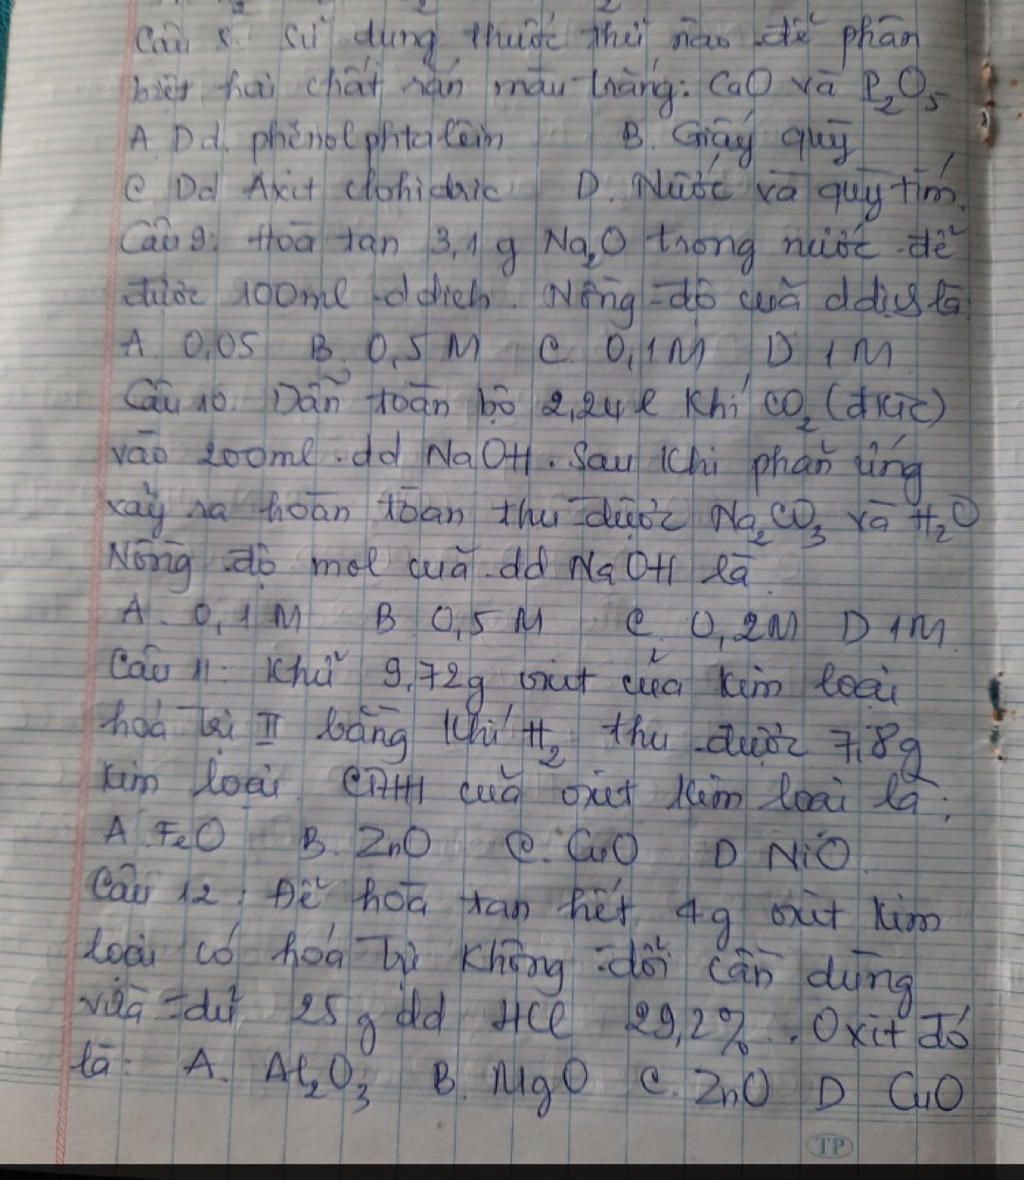 Câu 8. Sử dụng thuốc thử nào để phân
biệt hai chất rắn màu trắng: CaO và P₂O₅
A. Dd. phênolphtalêin B. Giấy quỳ
C. Dd Axit clohidric D. Nước và quỳ tím.
Câu 9: Hoà tan 3,1g Na₂O trong nước để
được 100ml ddịch. Nồng độ của ddịch là
A. 0,05 B. 0,5M C. 0,1M D 1M
Câu 10. Dẫn toàn bộ 2,24l khí CO₂ (đktc)
vào 200ml dd NaOH. Sau khi phản ứng
xảy ra hoàn toàn thu được Na₂CO₃ và H₂O
Nồng độ mol của dd NaOH là
A. 0,1M B. 0,5M C. 0,2M D 1M.
Câu 11: Khử 9,72g oxit của kim loại
hoá trị II bằng khí H₂ thu được 7,8g
kim loại. CTHH của oxit kim loại là:
A. FeO B. ZnO C. CuO D NiO
Câu 12: Để hoà tan hết 4g oxit kim
loại có hoá trị không đổi cần dùng
vừa đủ 25g dd HCl 29,2%. Oxit đó
là: A. Al₂O₃ B. MgO C. ZnO D CuO
TP